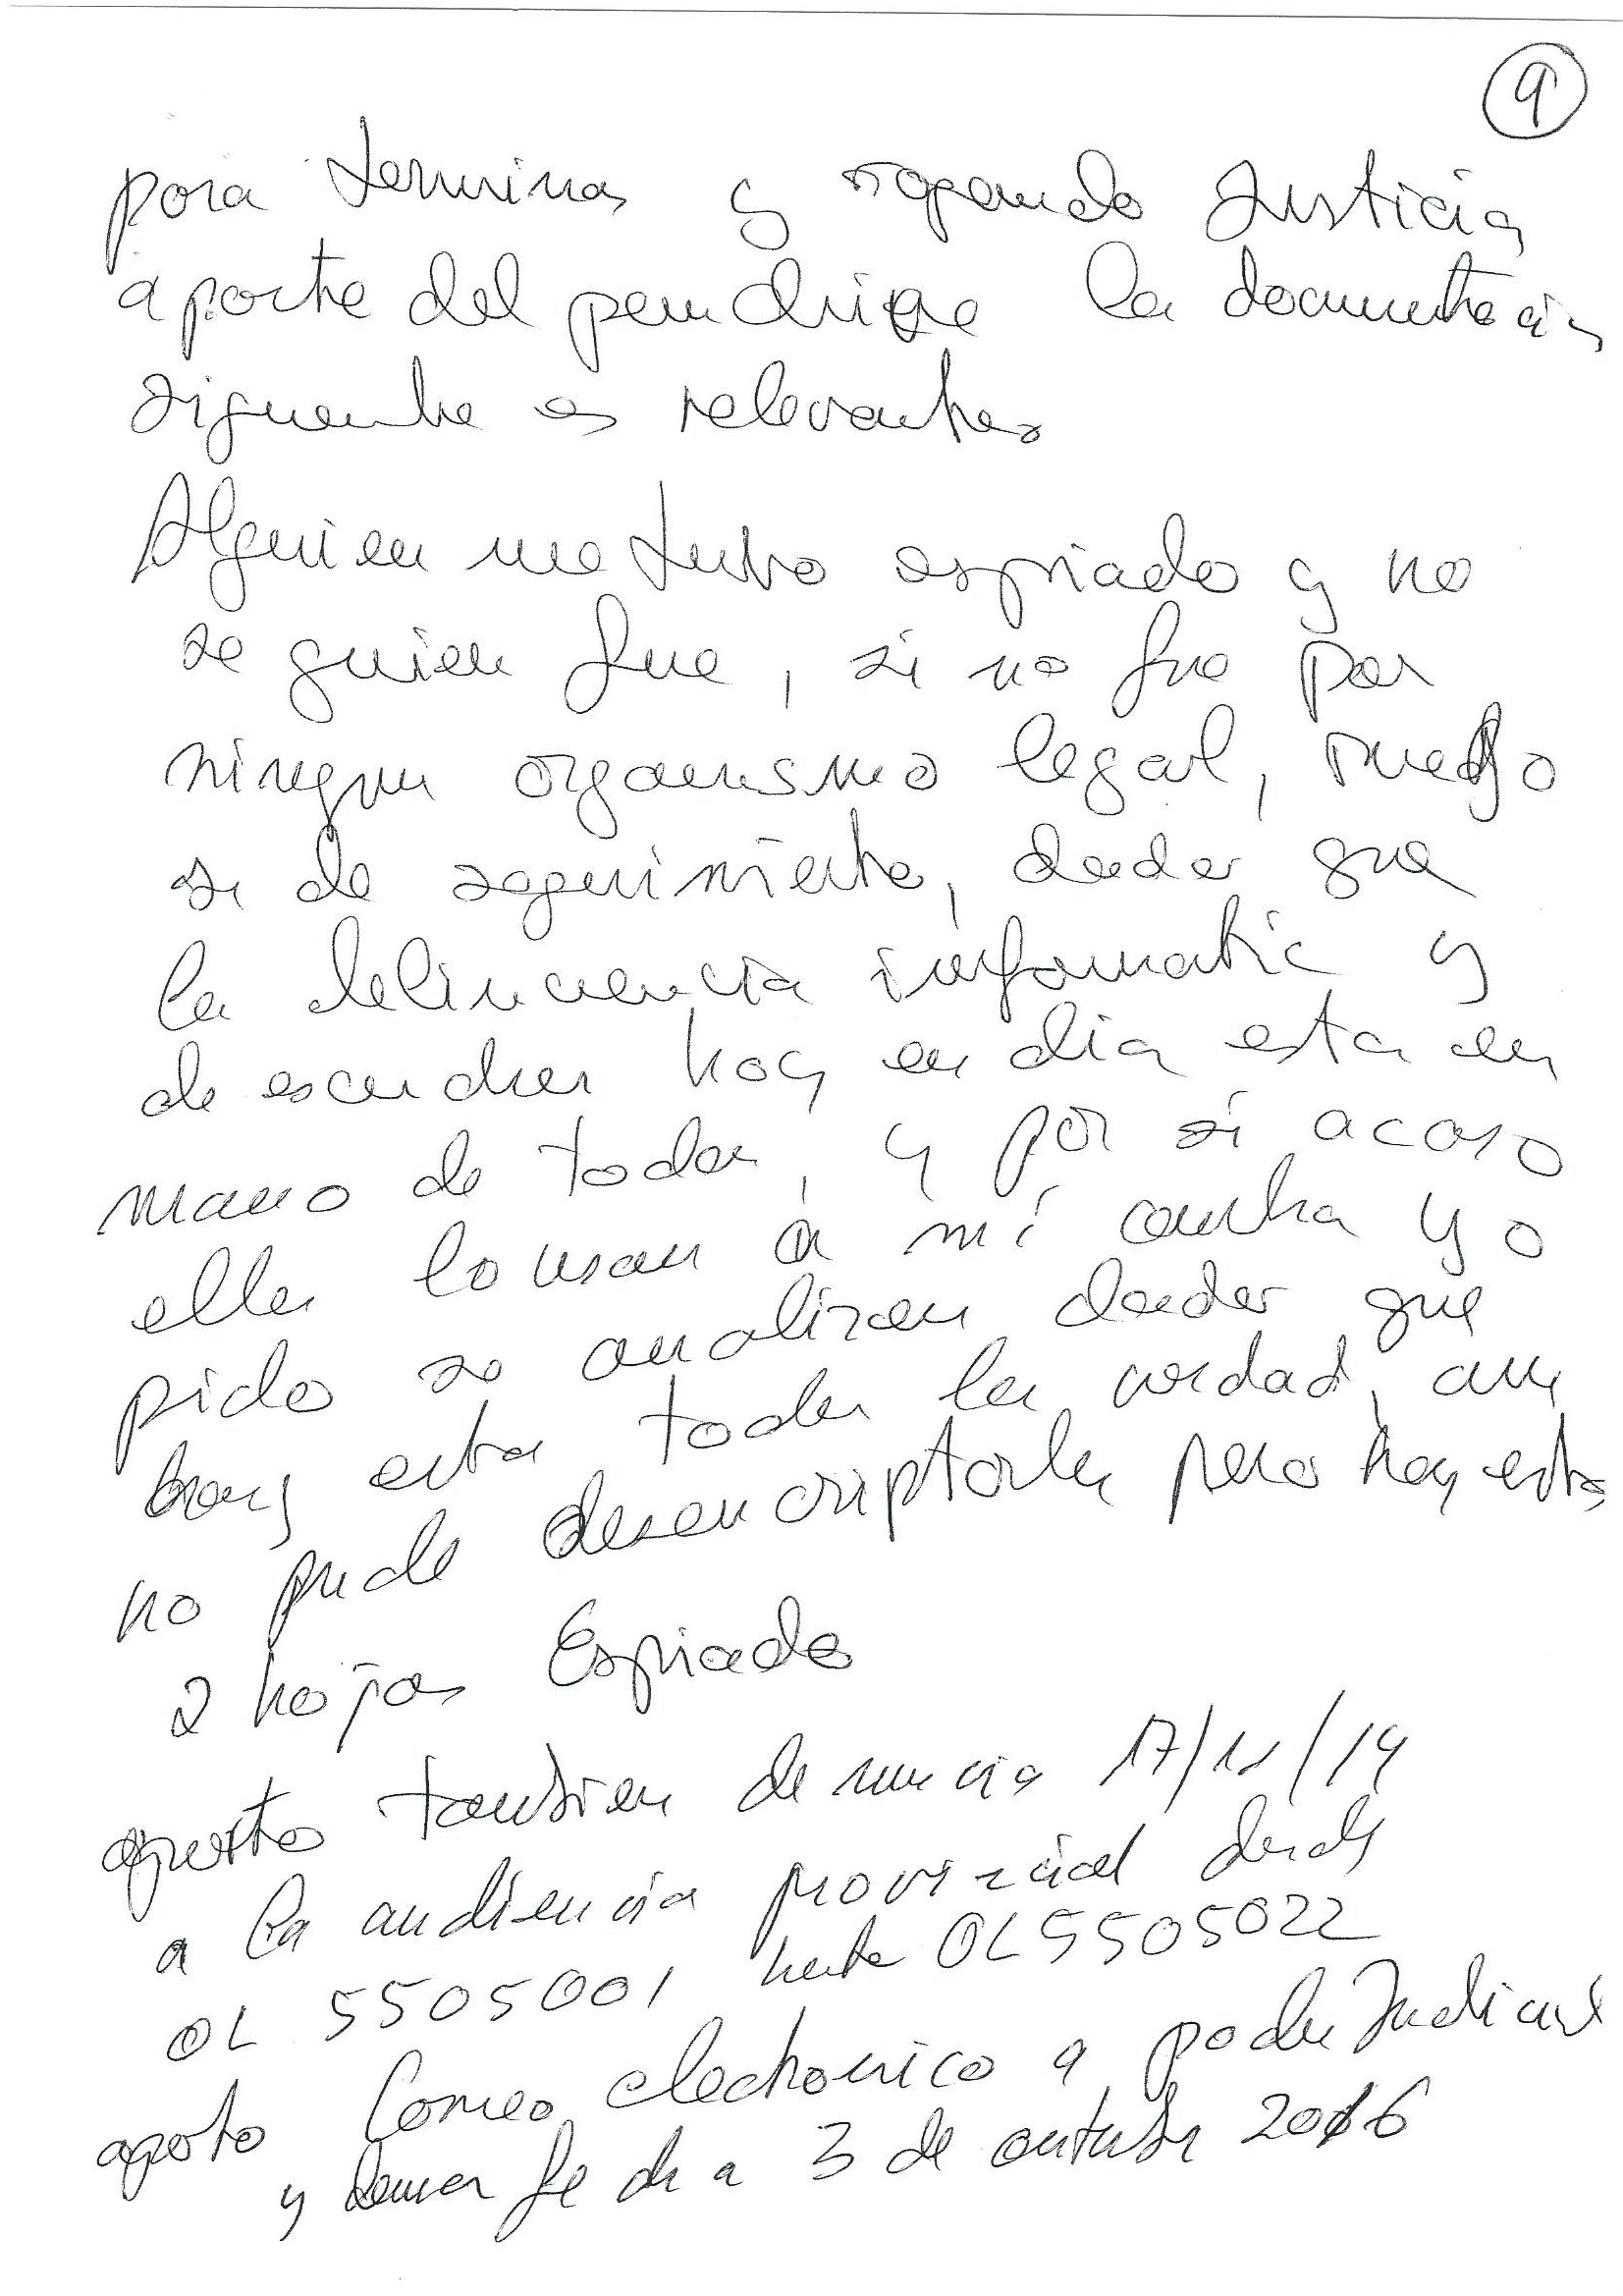 9
para terminar y rogando Justicia
aparte del pendrive la documentacion
siguiente es relevantes
Alguien me tubo espiado y no
se quien fue, si no fue por
ningun organismo legal, ruego
se de seguimiento, dado que
la delincuencia infomatic y
de escuchas hoy en dia esta en
mano de todos, y por si acaso
ellos lo usan a mi contra yo
pido se analizen dado que
hay esta toda la verdad, aun
no pude desencriptarla pero hay esta
2 hojas Espiado
aporto tambien denuncia 17/11/14
a la audiencia provincial desde
OL 5505001 hasta OL5505022
aporto Correo electronico a poder Judicial
y demas fecha 3 de octubre 2016